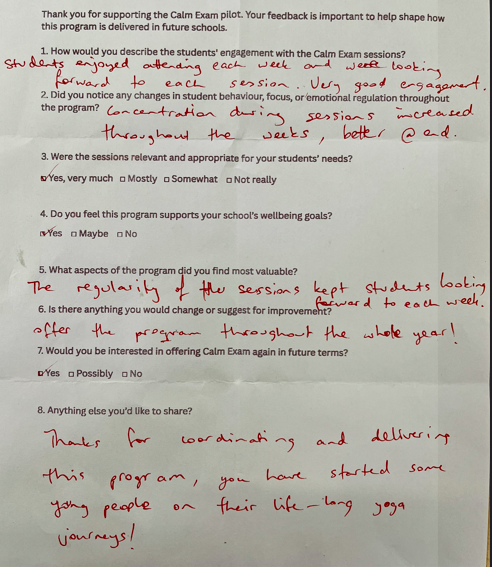 Thank you for supporting the Calm Exam pilot. Your feedback is important to help shape how
this program is delivered in future schools.
1. How would you describe the students' engagement with the Calm Exam sessions?
Students enjoyed attending each week and were looking
forward to each session. Very good engagement.
2. Did you notice any changes in student behaviour, focus, or emotional regulation throughout
the program? Concentration during sessions increased
throughout the weeks, better @ end.
3. Were the sessions relevant and appropriate for your students' needs?
☑Yes, very much □ Mostly □ Somewhat □ Not really
4. Do you feel this program supports your school's wellbeing goals?
☑Yes □ Maybe □ No
5. What aspects of the program did you find most valuable?
The regularity of the sessions kept students looking
forward to each week.
6. Is there anything you would change or suggest for improvement?
offer the program throughout the whole year!
7. Would you be interested in offering Calm Exam again in future terms?
☑Yes □ Possibly □ No
8. Anything else you'd like to share?
Thanks for coordinating and delivering
this program, you have started some
young people on their life-long yoga
journeys!